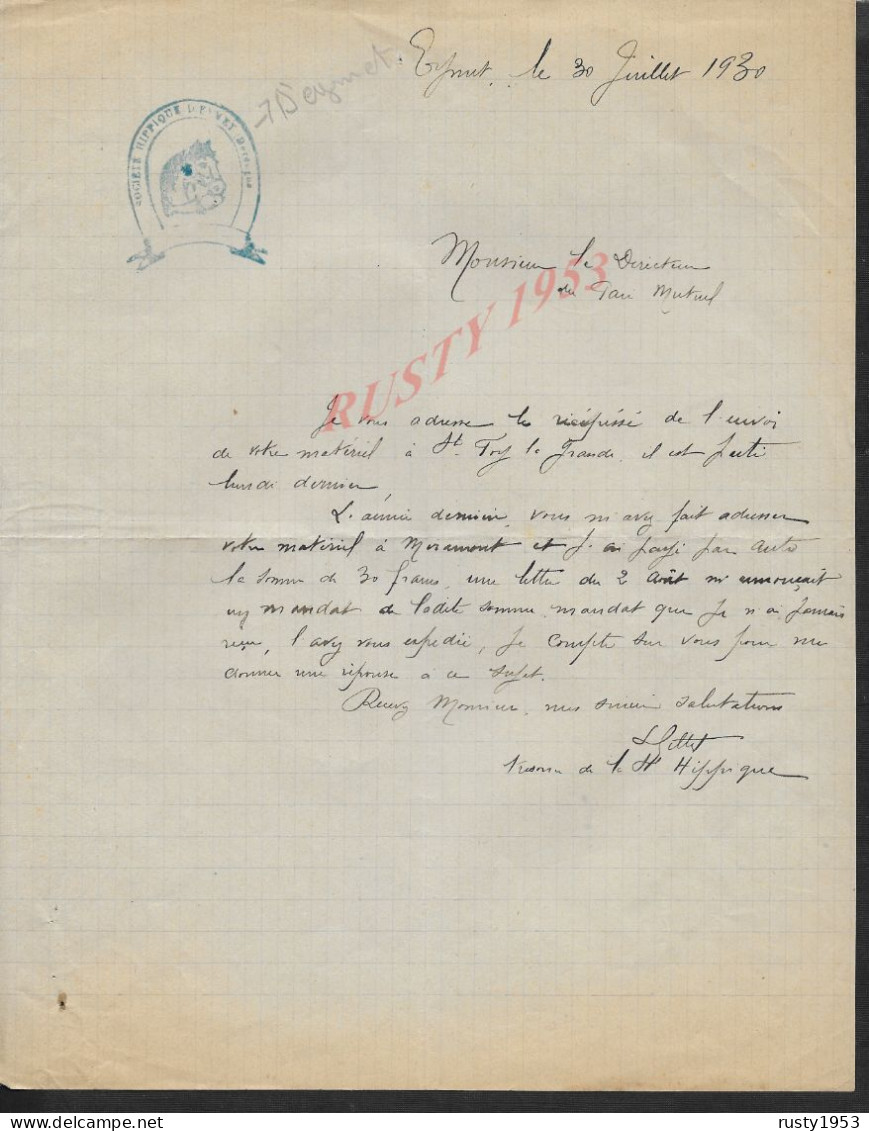 Eymet, le 30 Juillet 1930
→ D'eymet
SOCIÉTÉ HIPPIQUE D'EYMET Dordogne
Monsieur le Directeur
du Pari Mutuel
RUSTY 1953
Je vous adresse le récépissé de l'envoi
de votre matériel à St. Foy la Grande, il est parti
lundi dernier
L'année dernière, vous m'avez fait adresser
votre matériel à Miramont et j'ai payé par auto
la somme de 30 francs, une lettre du 2 Août m'annonçait
un mandat de ladite somme, mandat que je n'ai jamais
reçu, l'avez vous expédié, je compte sur vous pour me
donner une réponse à ce sujet.
Recevez Monsieur, mes sincères salutations
Gillet
trésorier de la Sté Hippique
DELCAMPE.NET
rusty1953